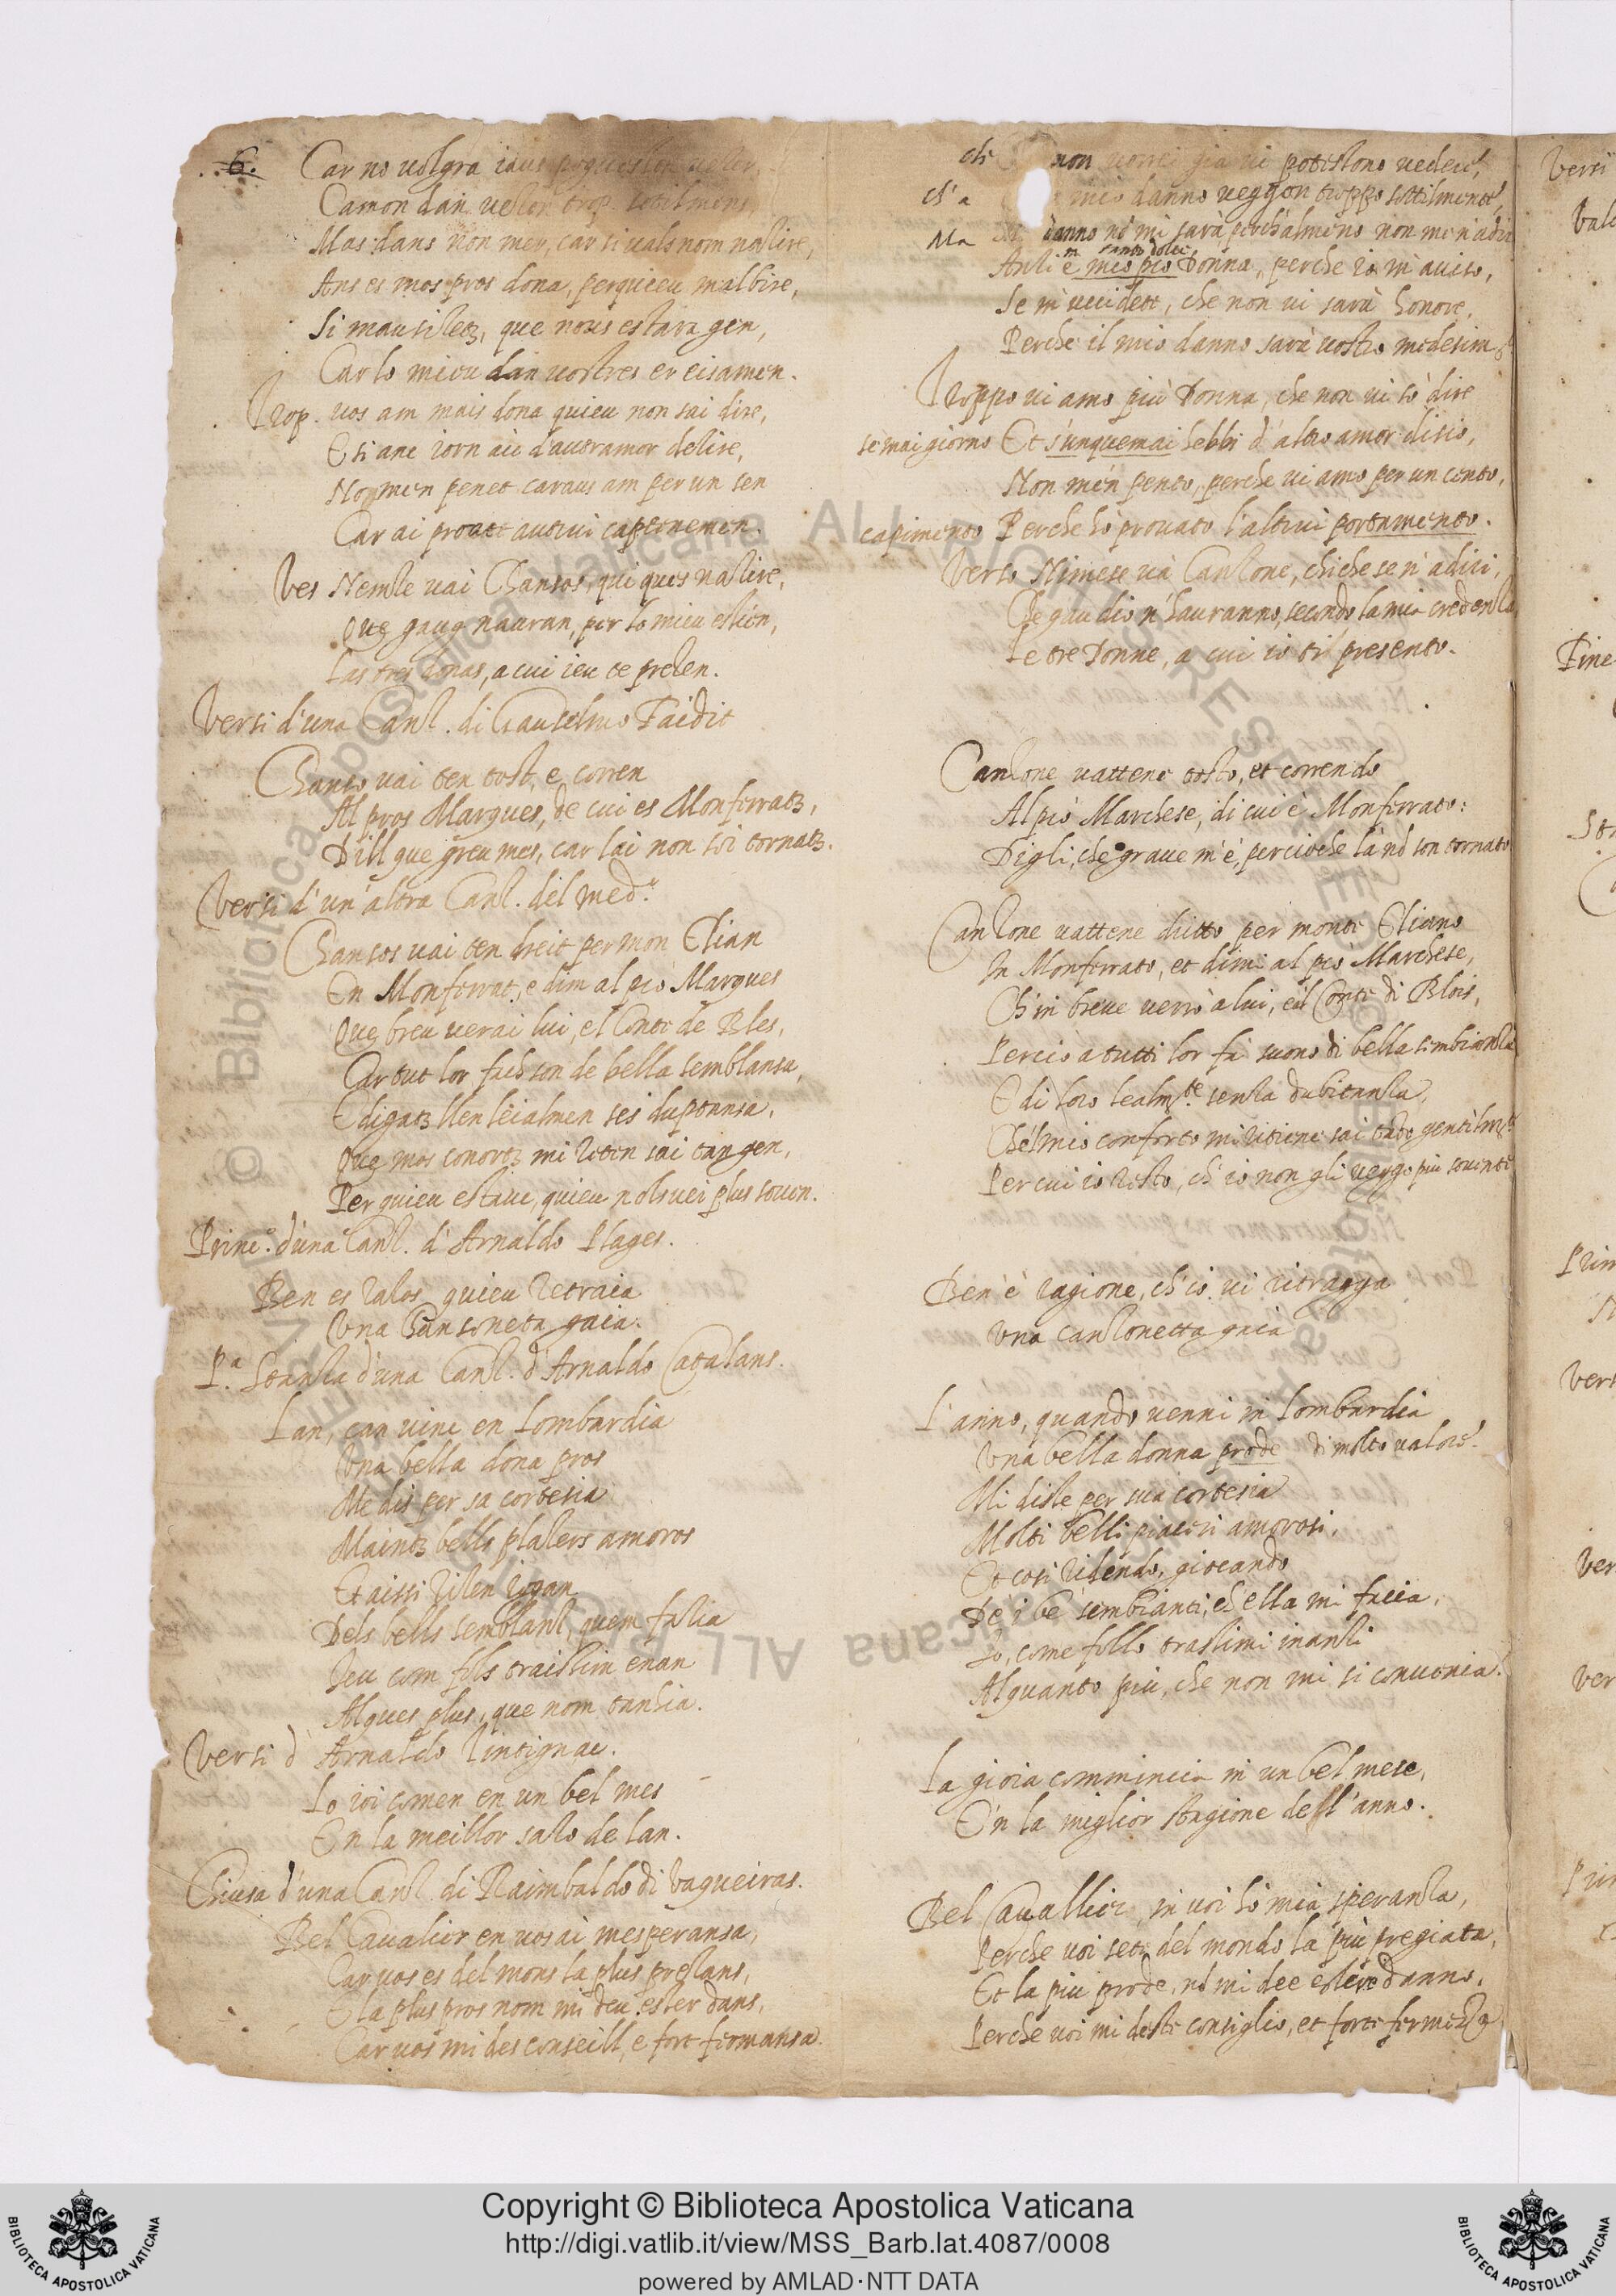 6.
Car no uolgra iaus poguesson ueder,
Camon dan ueson trop sotilmens,
Mas dans non mer, car si uals nom nazire,
Ans es mos pros dona, perquieu malbire,
Si mausisletz, que nous estara gen,
Car lo mieu dan uostres er eisamen.
Trop. uos am mais dona quieu non sai dire,
E si anc iorn aic d'autramor desire,
Non men penet caraus am per un sen
Car ai proat autrui captenemen.
Ves Nemse uai Chansos, qui ques nazire,
Que gaug nauran, per lo mieu escien,
Las tres donas, a cui ieu te prezen.
Versi d'una Canz. di Gauselmo Faidit
Chanso uai ten tost, e corren
Al pros Marques, de cui es Monferratz,
Dill que greu mes, car lai non soi tornatz.
Versi d'un'altra Canz. del med.º
Chansos uai ten dreit per mon Elian
En Monferrat, e dim al pro Marques
Que breu uerai lui, el Conte de Bles,
Car tut lor faich son de bella semblansa,
E digatz llen leialmen ses duptansa,
Que mos conortz mi reten sai tan gen,
Per quieu estauc, quieu nols uei plus souen.
Princ.º d'una Canz. d'Arnaldo Plages.
Ben es razos quieu retraia
Una Chansoneta gaia.
P.ª Stanza d'una Canz. d'Arnaldo Catalans.
Lan, can uinc en Lombardia
Una bella dona pros
Me dis per sa cortesia
Maintz bells plazers amoros
Et aissi rizen iogan
Dels bells semblanz, quem fazia
Ieu com fols traissim enan
Alques plus, que nom tanhia.
Versi d'Arnaldo Tintignac.
Lo ioi comen en un bel mes
En la meillor sazo de lan.
Chiusa d'una Canz. di Raimbaldo di Vaqueiras.
Bel Caualier en uos ai mesperansa,
Car uos es del mons la plus prezans,
E la plus pros nom mi deu esser dans,
Car uos mi des conseill, e fort fermansa.
che non uorrei già ui potessono uedere,
Ch'a mio danno ueggon troppo sottilmente,
Ma danno nõ mi sarà perch'almeno non me n'adiri
m canto dolce
Anzi è mio prò Donna, perche io m'auiso,
Se m'uccidete, che non ui sarà honore,
Perche il mio danno sarà uostro medesim.te
Troppo ui amo più Donna, che non ui sò dire
se mai giorno Et s'unquemai hebbi d'altro amor disio,
Non me'n pento, perche ui amo per un cento,
capimento Perche hò prouato l'altrui portamento.
Verso Nimese uà Canzone, chi che se n'adiri,
Che gaudio n'hauranno, secondo la mia credenza
Le tre Donne, a cui io ti presento.
Canzone uattene tosto, et correndo
Al prò Marchese, di cui è Monferrato:
Digli, che graue m'è, percioche là nõ son tornato
Canzone uattene dritto per monte Eliano
In Monferrato, et dimi al prò Marchese,
Ch'in breue uerrò a lui, e'l Conte di Blois,
Percio a tutti lor fa suono di bella sembianza
E di loro lealm.te senza dubitanza,
Che'l mio conforto mi ritiene sai tãto gentilm.te
Per cui io resto, ch'io non gli ueggo piu souente
Ben'è ragione, ch'io ui ritragga
Una canzonetta gaia
L'anno, quando uenni in Lombardia
Una bella donna prode di molto ualore.
Mi disse per sua cortesia
Molti belli piaceri amorosi,
Et cosi ridendo, giocando
De i be' sembianti, ch'ella mi facia,
Io, come folle trassimi inanzi
Alquanto più, che non mi si conuenia.
La gioia commincia in un bel mese,
E'n la miglior stagione dell'anno.
Bel Cauallier, in uoi hò mia speranza,
Perche uoi sete del mondo la più pregiata,
Et la piu prode, nõ mi dee essere danno,
Perche uoi mi deste consiglio, et forte fermezza
Versi
Fine
Prim
Vers
Ver
Ver
Prin
© Biblioteca Apostolica Vaticana ALL RIGHTS RESERVED
Copyright © Biblioteca Apostolica Vaticana
http://digi.vatlib.it/view/MSS_Barb.lat.4087/0008
powered by AMLAD·NTT DATA
BIBLIOTECA APOSTOLICA VATICANA
BIBLIOTECA APOSTOLICA VATICANA